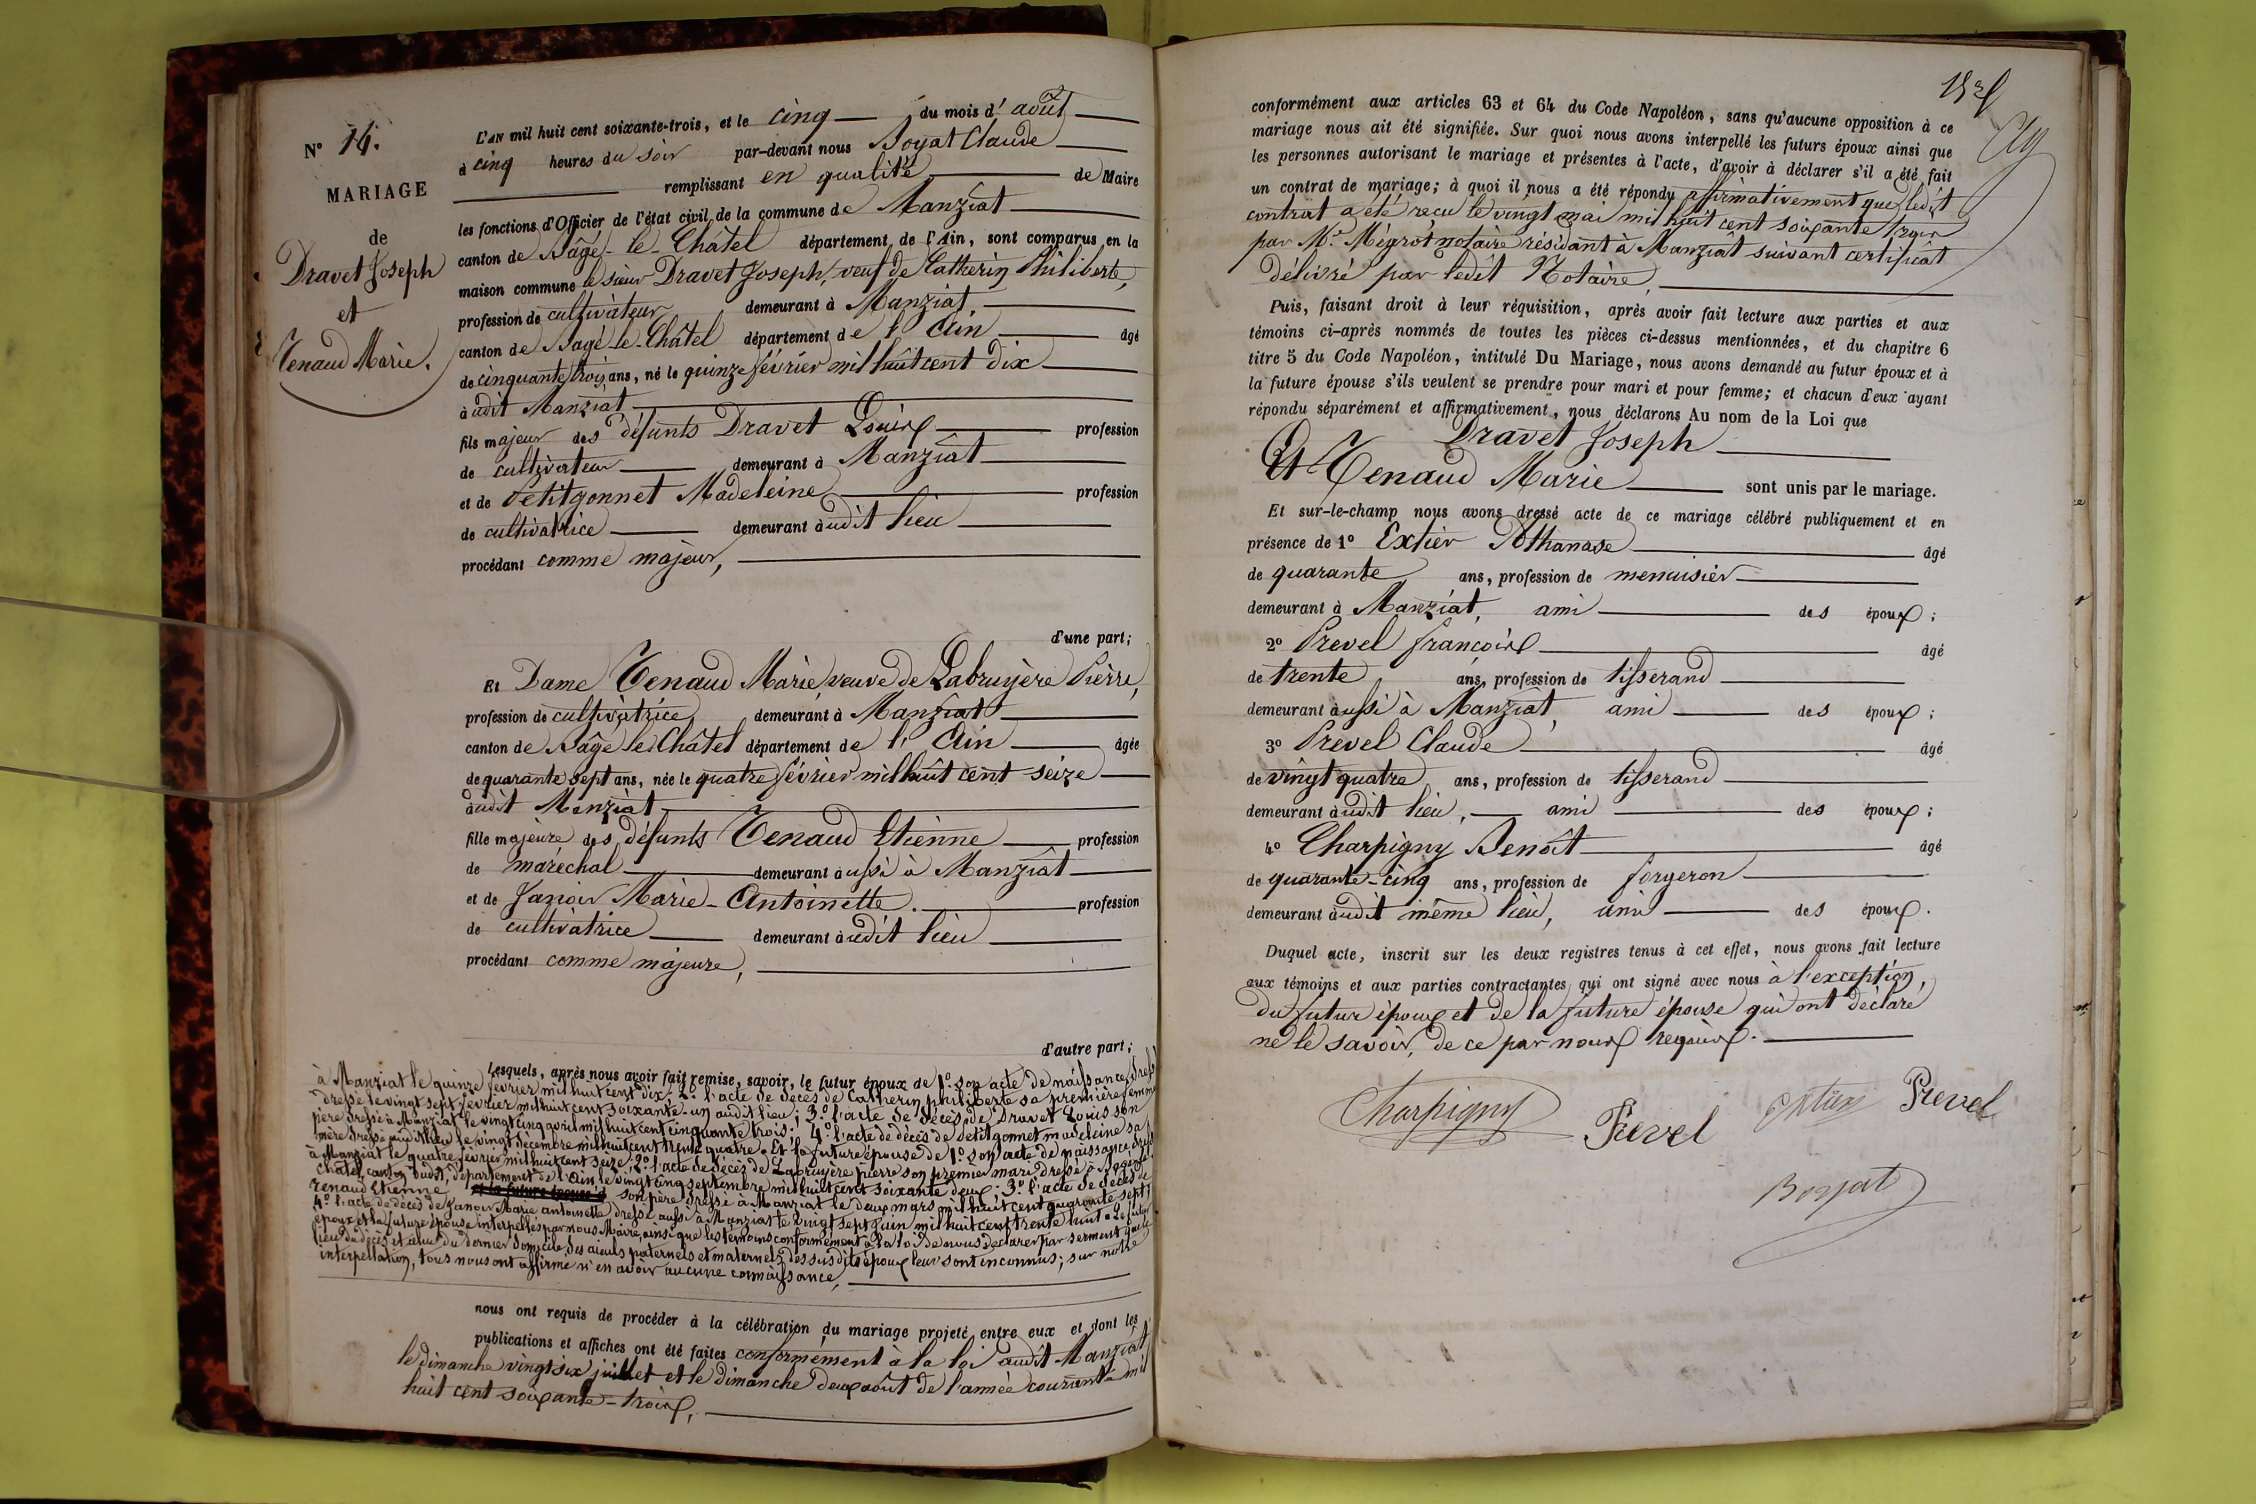 N° 14.
MARIAGE
de
Dravet Joseph
et
Tenaud Marie.
L'AN mil huit cent soixante-trois, et le cinq du mois d'août
à cinq heures du soir par-devant nous Boyat Claude
remplissant en qualité de Maire
les fonctions d'Officier de l'état civil de la commune de Manziat
canton de Bâgé-le-Châtel département de l'Ain, sont comparus en la
maison commune le sieur Dravet Joseph, veuf de Catherin Philiberte,
profession de cultivateur demeurant à Manziat,
canton de Bagé-le-Châtel département de l'Ain âgé
de cinquante trois ans, né le quinze février mil huit cent dix
à udit Manziat
fils majeur des défunts Dravet Louis profession
de cultivateur demeurant à Manziat
et de Petitgonnet Madeleine profession
de cultivatrice demeurant àudit lieu
procédant comme majeur,
d'une part;
Et Dame Tenaud Marie, veuve de Labruyère Pierre,
profession de cultivatrice demeurant à Manziat
canton de Bâgé le Châtel département de l'Ain âgée
de quarante sept ans, née le quatre février mil huit cent seize
àudit Manziat
fille majeure des défunts Tenaud Etienne profession
de maréchal demeurant aussi à Manziat
et de Janoir Marie-Antoinette. profession
de cultivatrice demeurant àudit lieu
procédant comme majeure,
d'autre part;
Lesquels, après nous avoir fait remise, savoir, le futur époux de 1° son acte de naissance, dressé
à Manziat le quinze février mil huit cent dix; 2° l'acte de décès de Catherin philiberte sa première femme
dressé le vingt sept février mil huit cent soixante-un audit lieu; 3° l'acte de décès de Dravet Louis son
père dressé à Manziat le vingt cinq avril mil huit cent cinquante trois; 4° l'acte de décès de Petitgonnet madeleine sa
mère dressé audit lieu le vingt décembre mil huit cent trente quatre. Et la future épouse de 1° son acte de naissance dressé
à Manziat le quatre février mil huit cent seize; 2° l'acte de décès de Labruyère pierre son premier mari dressé à Bagé le
châtel, canton dudit, département de l'Ain le vingt cinq septembre mil huit cent soixante deux; 3° l'acte de décès de
Tenaud Etienne son père dressé à Manziat le deux mars mil huit cent quarante sept;
4° l'acte de décès de Janoir Marie antoinette dressé aussi à Manziat le vingt sept juin mil huit cent trente huit. Le futur
époux et la future épouse interpellés par nous Maire, ainsi que les témoins conformément à la loi de nous déclarer par serment que le
lieu du décès et celui du dernier domicile des aïeuls paternels et maternels des susdits époux leur sont inconnus; sur notre
interpellation, tous nous ont affirmé n'en avoir aucune connaissance,
nous ont requis de procéder à la célébration du mariage projeté entre eux et dont les
publications et affiches ont été faites conformément à la loi audit Manziat
le dimanche vingt six juillet et le dimanche deux août de l'année courante mil
huit cent soixante-trois,
conformément aux articles 63 et 64 du Code Napoléon, sans qu'aucune opposition à ce
mariage nous ait été signifiée. Sur quoi nous avons interpellé les futurs époux ainsi que
les personnes autorisant le mariage et présentes à l'acte, d'avoir à déclarer s'il a été fait
un contrat de mariage; à quoi il nous a été répondu affirmativement que ledit
contrat a été reçu le vingt mai mil huit cent soixante trois
par Me Mégrot notaire résidant à Manziat suivant certificat
délivré par ledit Notaire,
Puis, faisant droit à leur réquisition, après avoir fait lecture aux parties et aux
témoins ci-après nommés de toutes les pièces ci-dessus mentionnées, et du chapitre 6
titre 5 du Code Napoléon, intitulé Du Mariage, nous avons demandé au futur époux et à
la future épouse s'ils veulent se prendre pour mari et pour femme; et chacun d'eux ayant
répondu séparément et affirmativement, nous déclarons Au nom de la Loi que
Dravet Joseph
Et Tenaud Marie sont unis par le mariage.
Et sur-le-champ nous avons dressé acte de ce mariage célébré publiquement et en
présence de 1° Extier Athanase âgé
de quarante ans, profession de menuisier
demeurant à Manziat, ami des époux;
2° Prevel françois âgé
de trente ans, profession de tisserand
demeurant aussi à Manziat, ami des époux;
3° Prevel Claude âgé
de vingt quatre ans, profession de tisserand
demeurant àudit lieu, ami des époux;
4° Charpigny Benoît âgé
de quarante-cinq ans, profession de forgeron
demeurant àudit même lieu, ami des époux.
Duquel acte, inscrit sur les deux registres tenus à cet effet, nous avons fait lecture
aux témoins et aux parties contractantes, qui ont signé avec nous à l'exception,
du futur époux et de la future épouse qui ont déclaré
ne le savoir, de ce par nous requis.
Charpigny Prevel Extier Prevel
Boyat